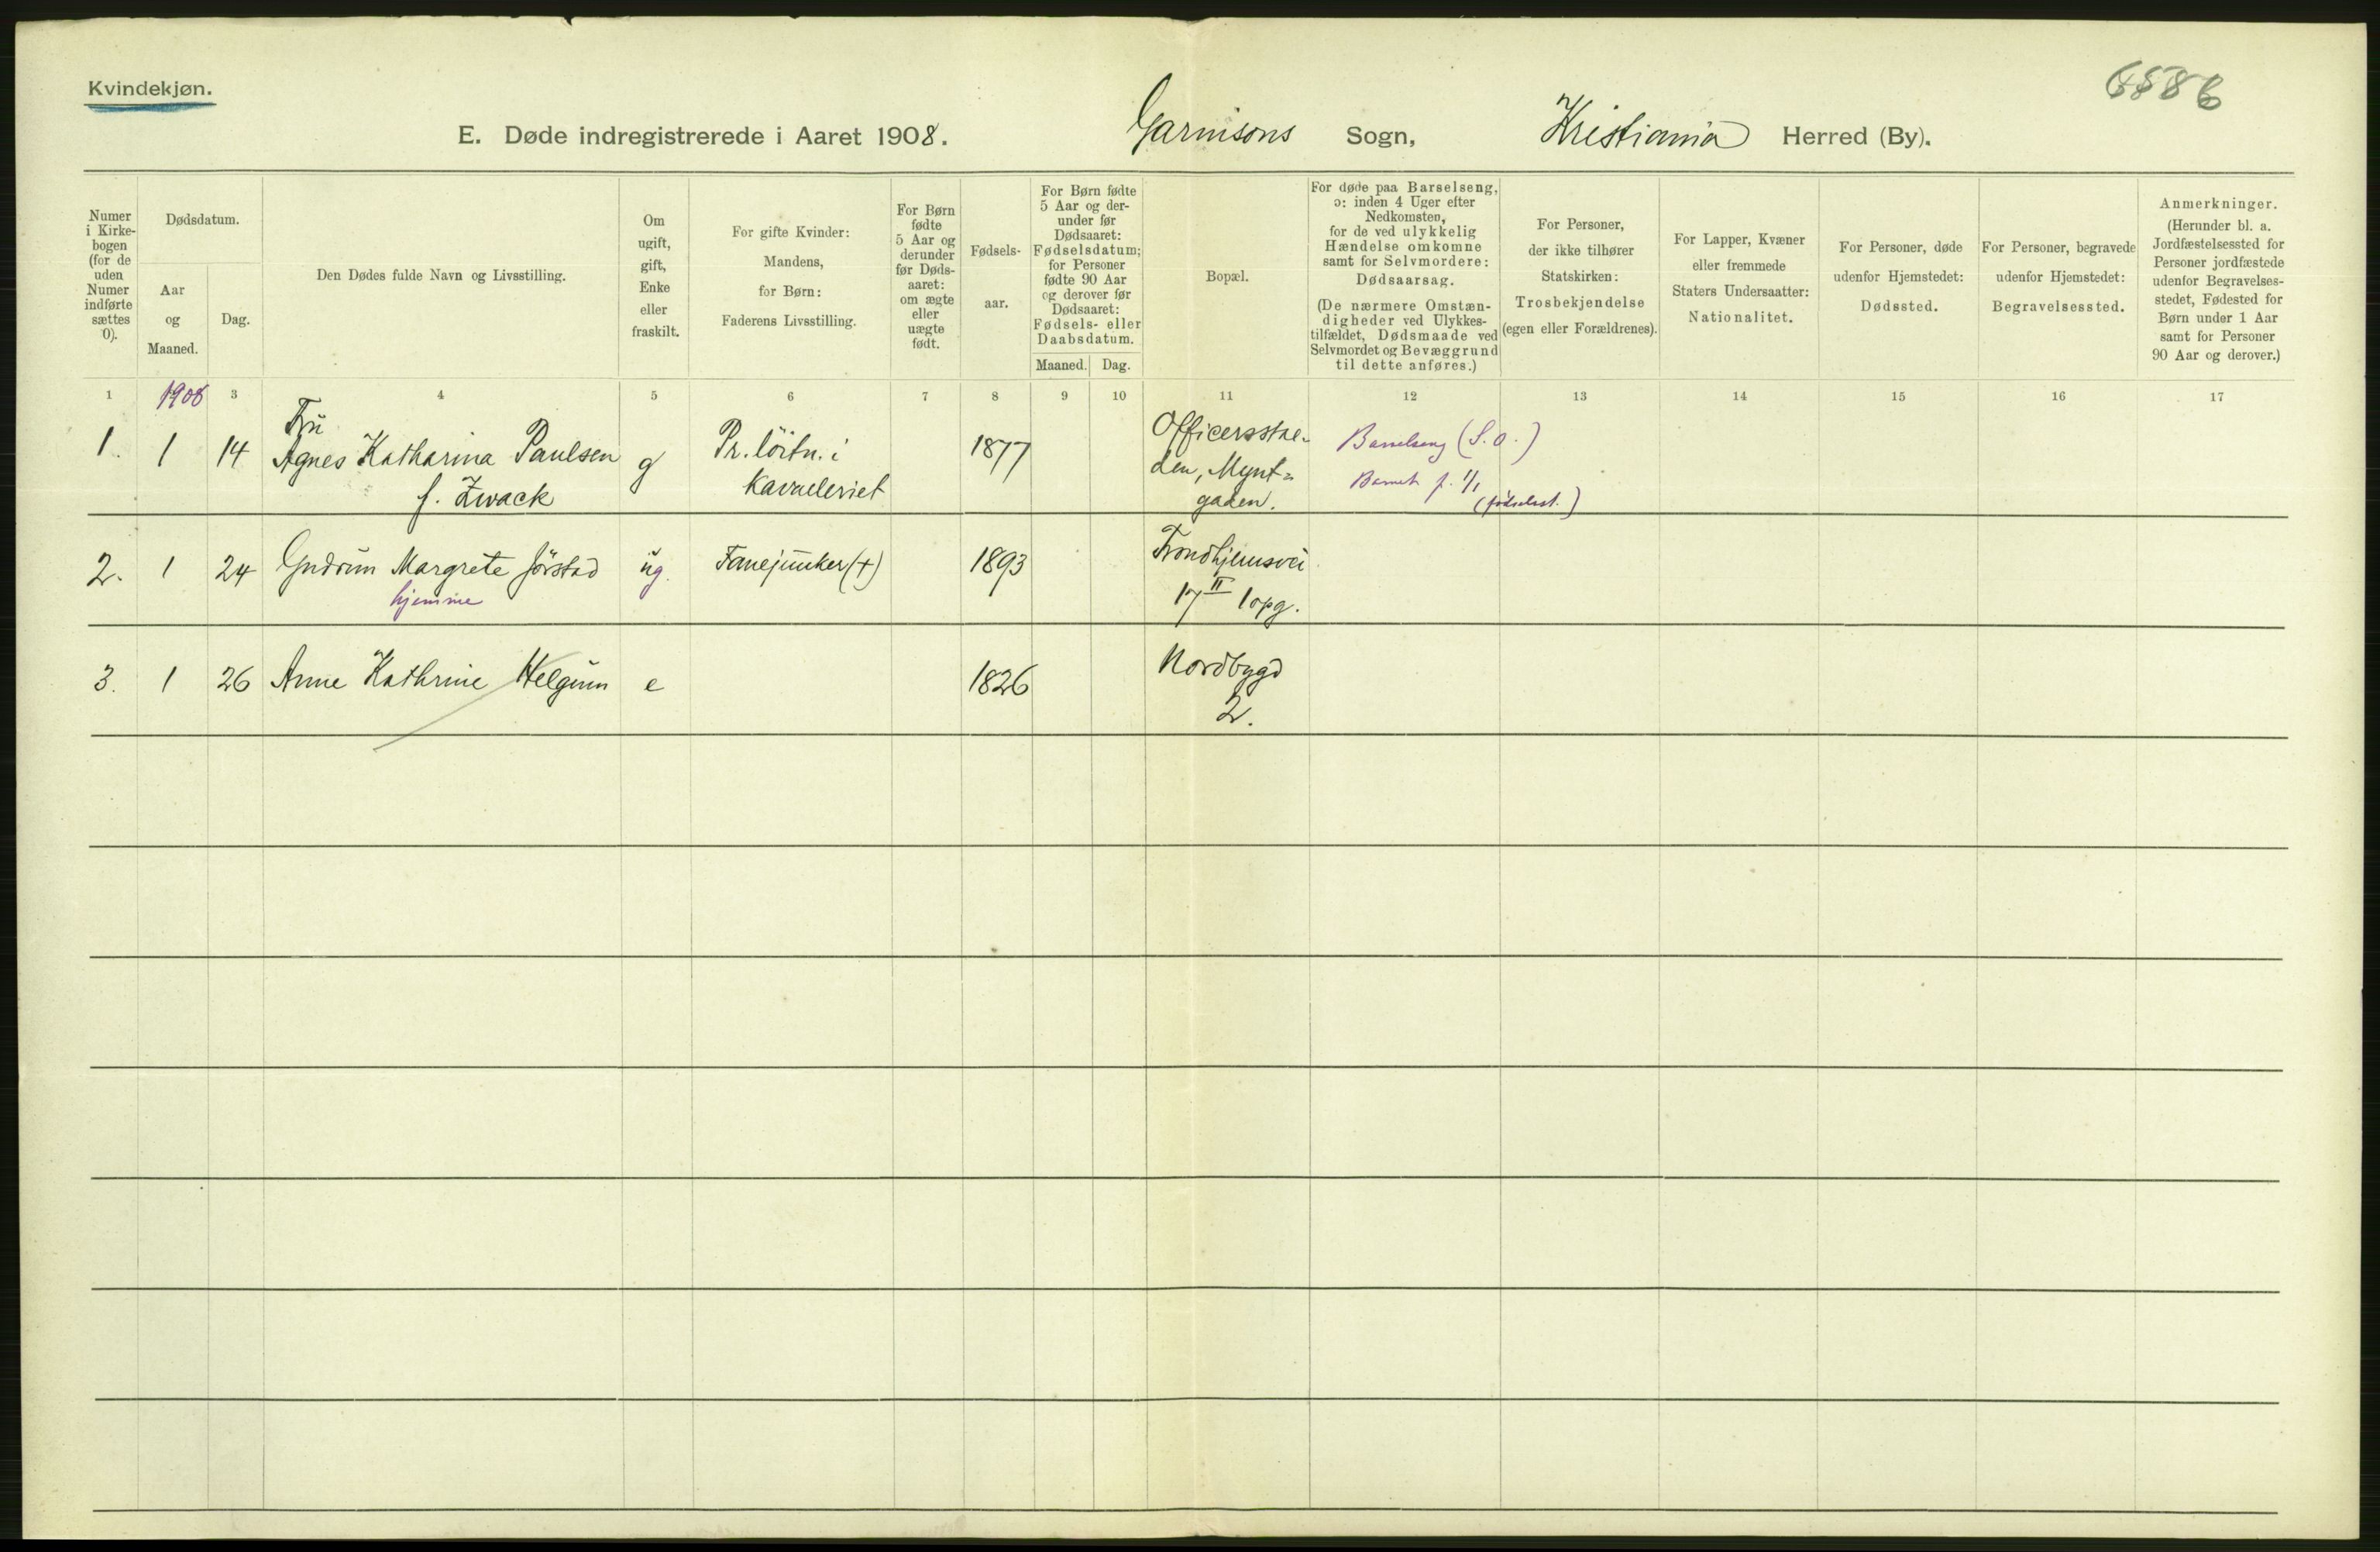 Kvindekjøn.
E. Døde indregistrerede i Aaret 1908. Garnisons Sogn, Kristiania Herred (By).
Numer i Kirkebogen (for de uden Numer indførte sættes 0).
Dødsdatum.
Aar og Maaned.
Dag.
Den Dødes fulde Navn og Livsstilling.
Om ugift, gift, Enke eller fraskilt.
For gifte Kvinder: Mandens, for Børn: Faderens Livsstilling.
For Børn fødte 5 Aar og derunder før Dødsaaret: om ægte eller uægte født.
Fødselsaar.
For Børn fødte 5 Aar og derunder før Dødsaaret: Fødselsdatum; for Personer fødte 90 Aar og derover før Dødsaaret: Fødsels- eller Daabsdatum.
Maaned. Dag.
Bopæl.
For døde paa Barselseng, ɔ: inden 4 Uger efter Nedkomsten, for de ved ulykkelig Hændelse omkomne samt for Selvmordere: Dødsaarsag. (De nærmere Omstændigheder ved Ulykkestilfældet, Dødsmaade ved Selvmordet og Bevæggrund til dette anføres.)
For Personer, der ikke tilhører Statskirken: Trosbekjendelse (egen eller Forældrenes).
For Lapper, Kvæner eller fremmede Staters Undersaatter: Nationalitet.
For Personer, døde udenfor Hjemstedet: Dødssted.
For Personer, begravede udenfor Hjemstedet: Begravelsessted.
Anmerkninger. (Herunder bl. a. Jordfæstelsessted for Personer jordfæstede udenfor Begravelsesstedet, Fødested for Børn under 1 Aar samt for Personer 90 Aar og derover.)
1 1908 3 4 5 6 7 8 9 10 11 12 13 14 15 16 17
1. 1 14 Fru Agnes Katharina Paulsen f. Zwack g Pr. löitn. i Kavaleriet 1877 Officersstae- den, Mynt= gaden. Barselseng (S.O.) Barnet f. 1/1
2. 1 24 Gudrun Margrete Jörstad ug. Fanejunker (+) 1893 Trondhjemsvei 17 II 1 opg.
hjemme
3. 1 26 Anne Kathrine Helgum e 1826 Nordbygd 2.